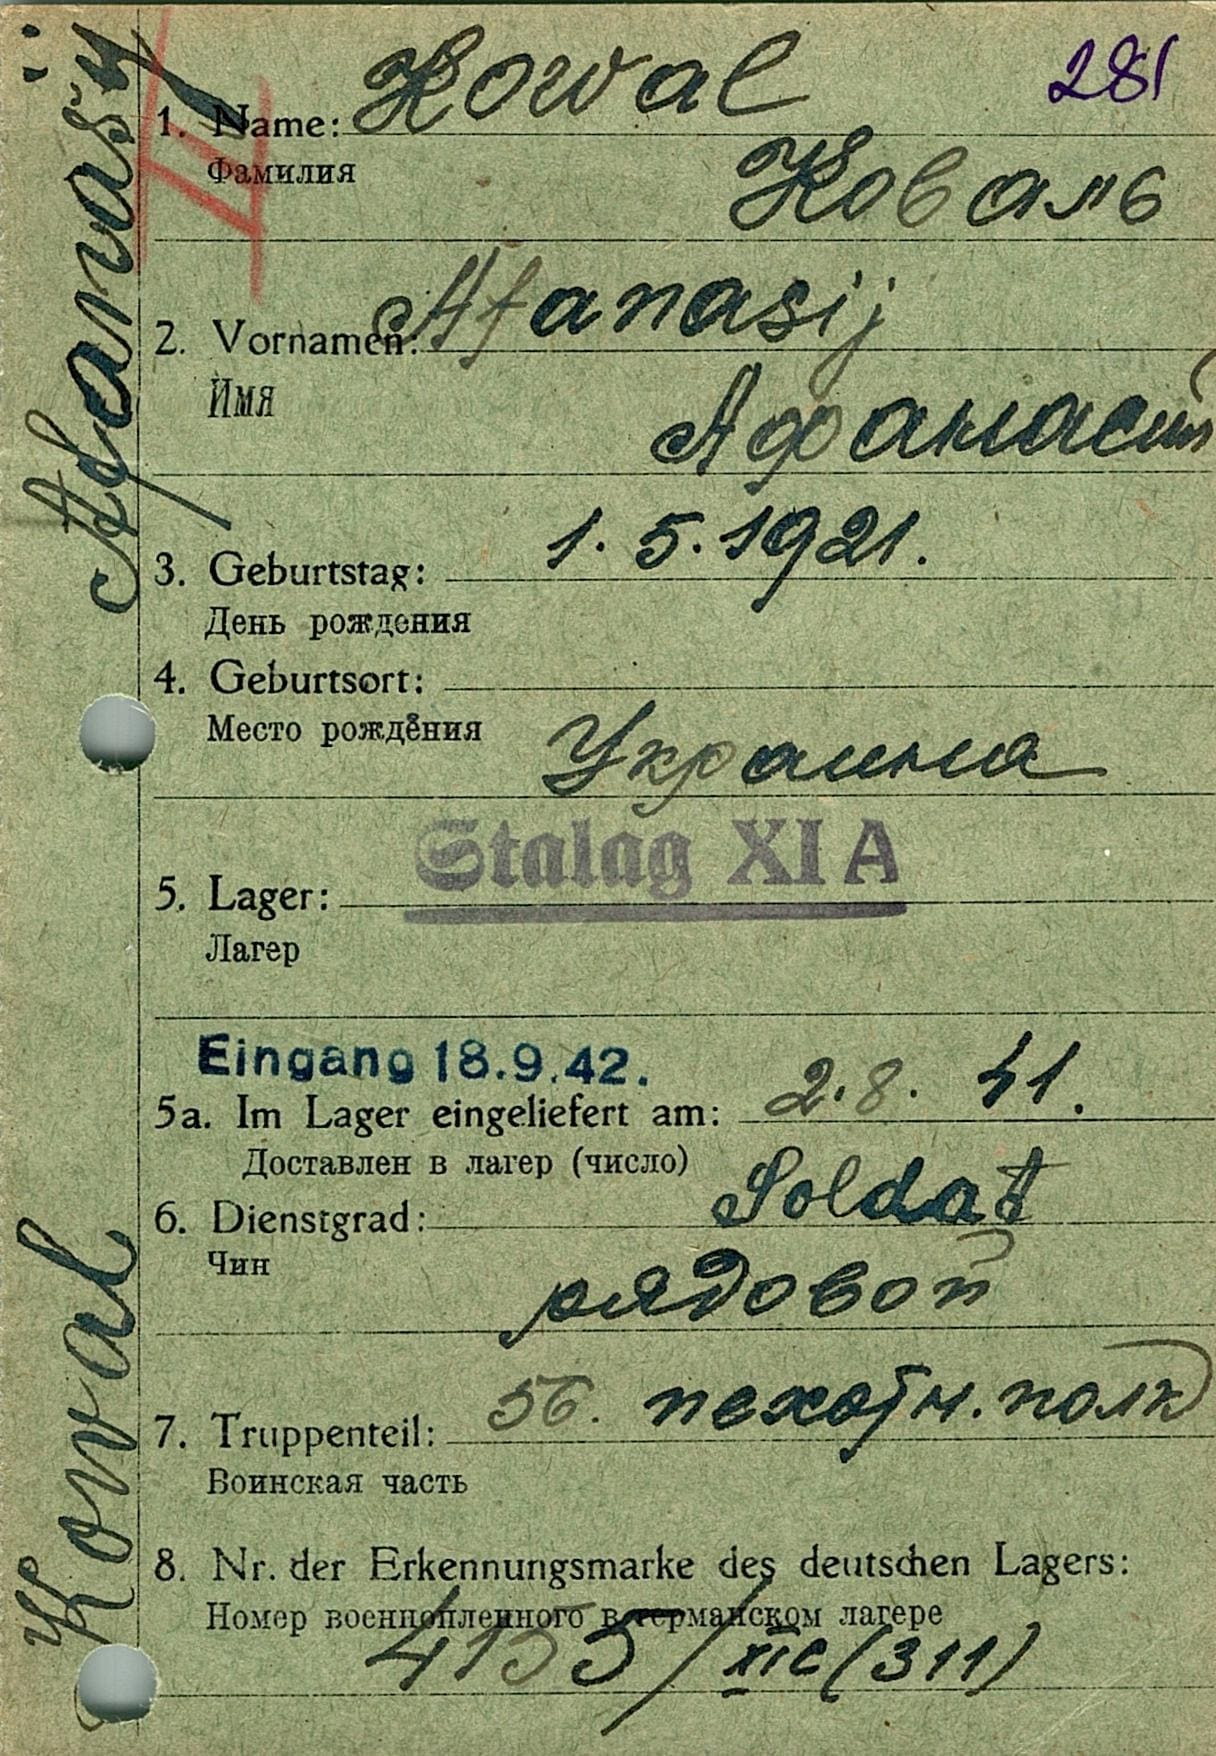 281
Kowal
1. Name:
Фамилия
Коваль
Afanasij
2. Vornamen:
Имя
Афанасий
1. 5. 1921.
3. Geburtstag:
День рождения
4. Geburtsort:
Место рождения
Украина
Stalag XI A
5. Lager:
Лагер
Eingang 18.9.42.
5a. Im Lager eingeliefert am: 2. 8. 41.
Доставлен в лагер (число)
6. Dienstgrad: Soldat
Чин
рядовой
7. Truppenteil: 56. пехотн. полк
Воинская часть
8. Nr. der Erkennungsmarke des deutschen Lagers:
Номер военнопленного в германском лагере
4155/XIC (311)
Koval Afanasij